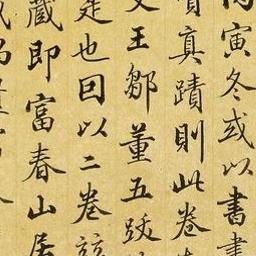 寅冬或以書畫
真蹟則此卷
王鄒董五跋
也回以二卷
藏即富春山居